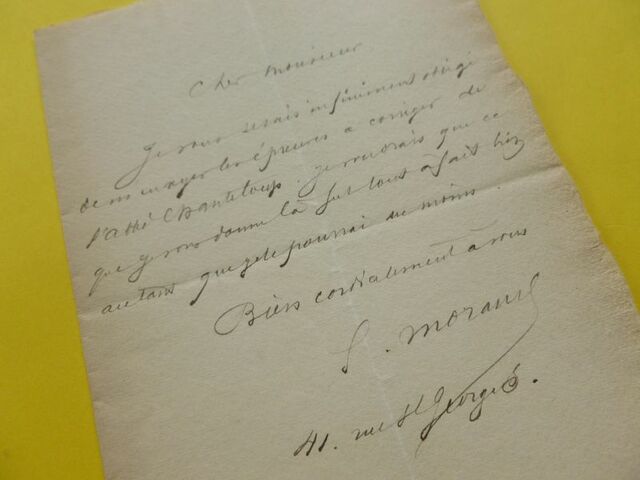 Cher Monsieur
Je vous serais infiniment obligé
de m'envoyer les épreuves à corriger de
l'abbé Chanteloup. Je voudrais que ce
que je vous donne là fut tout à fait bien
autant que je le pourrai du moins.
Bien cordialement à vous
S. Morand
41. rue St Georges.